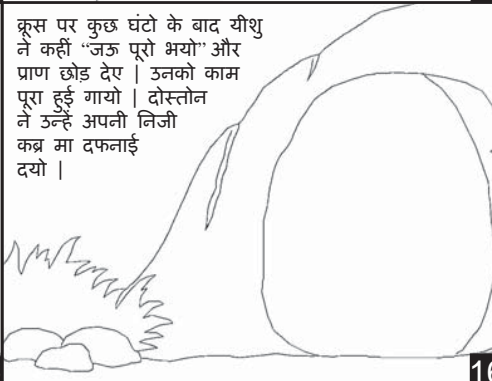 क्रूस पर कुछ घंटो के बाद यीशु
ने कहीं “जऊ पूरो भयो” और
प्राण छोड़ देए | उनको काम
पूरा हुई गायो | दोस्तोन
ने उन्हें अपनी निजी
कब्र मा दफनाई
दयो |